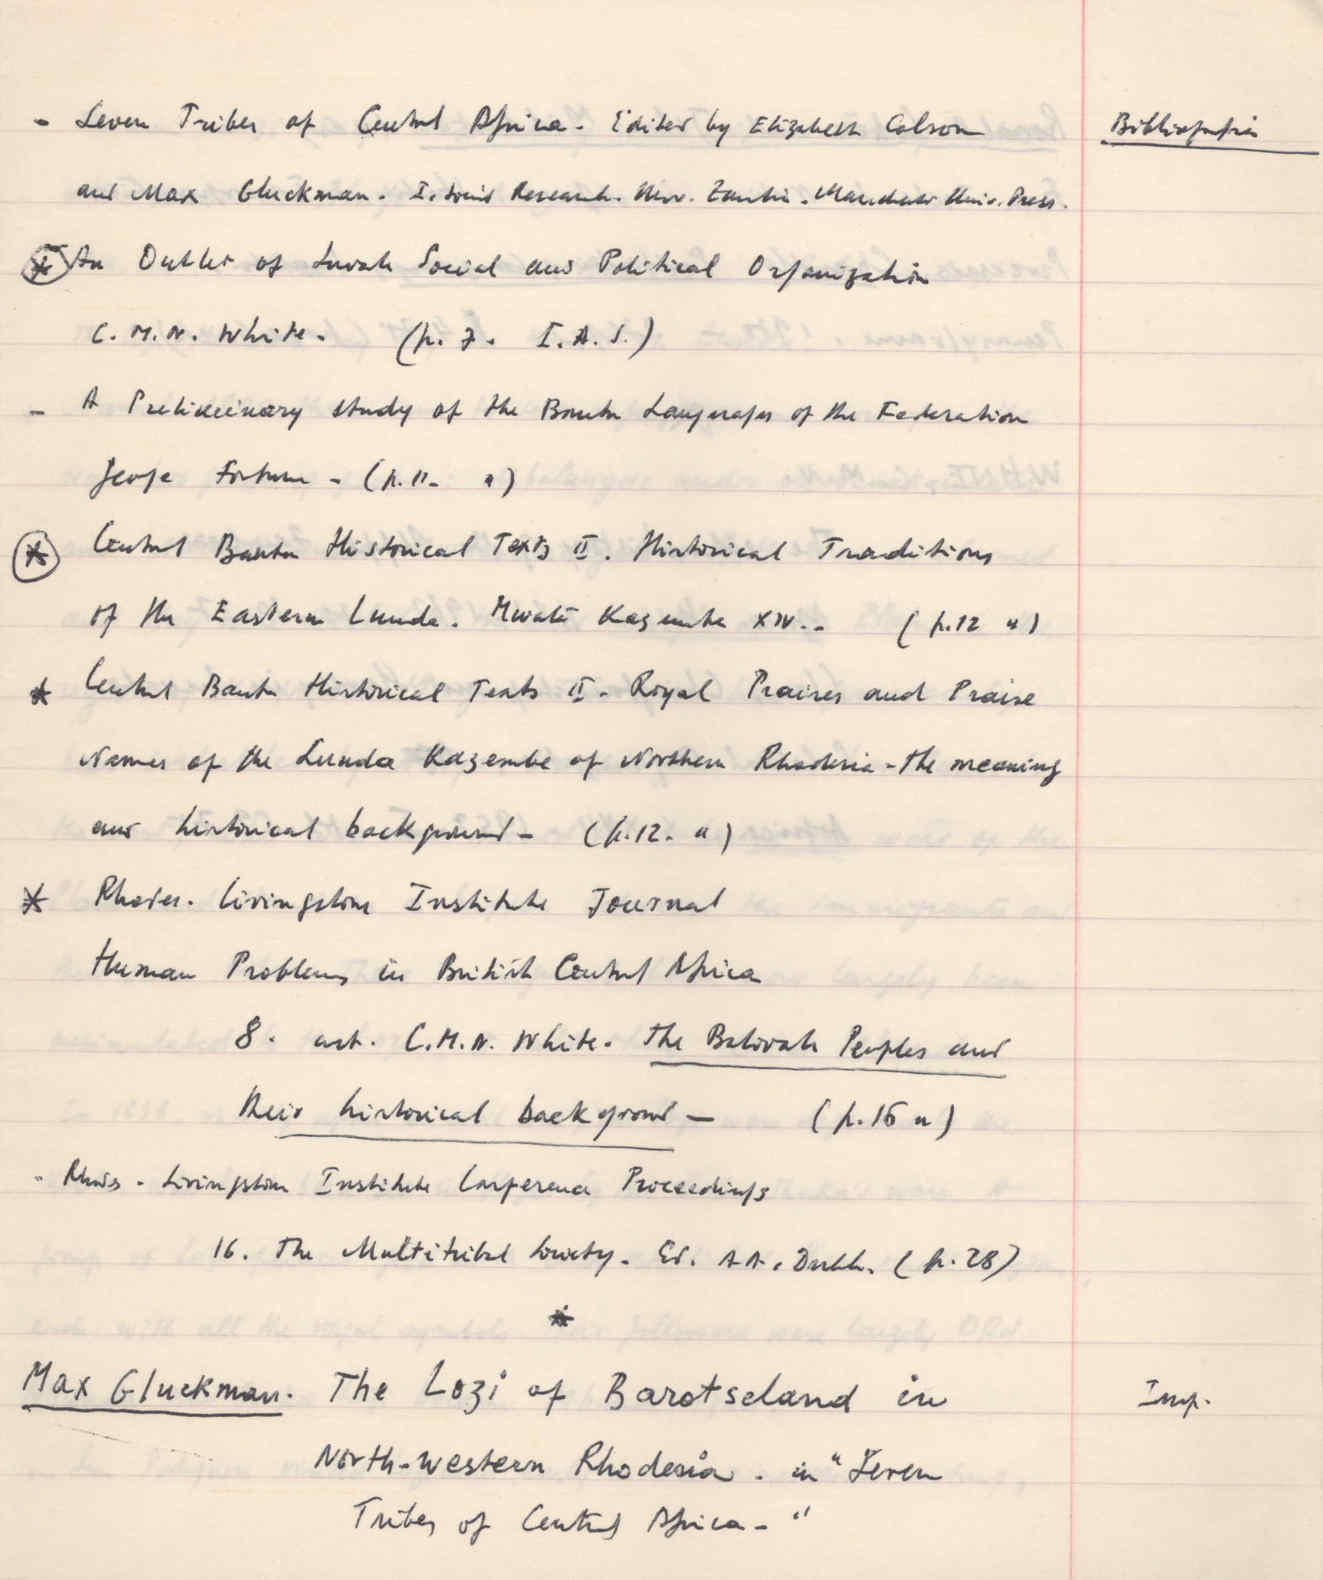 - Seven Tribes of Central Africa. Edited by Elizabeth Colson
Bibliografia
and Max Gluckman. I. Social Research. Univ. Zambia. Manchester Univ. Press.
* An Outline of Luvale Social and Political Organization
C. M. N. White. (p. 7. I.A.S.)
- A Preliminary study of the Bantu Languages of the Federation
George Fortune - (p. 11. ")
* Central Bantu Historical Texts II. Historical Traditions
of the Eastern Lunda. Mwata Kazembe XIV.. (p. 12 ")
* Central Bantu Historical Texts II. Royal Praises and Praise
Names of the Lunda Kazembe of Northern Rhodesia - the meaning
and historical background - (p. 12. ")
* Rhodes. Livingstone Institute Journal
Human Problems in British Central Africa
8. art. C.M.N. White. The Balovale Peoples and
their historical background - (p. 16 ")
- Rhodes - Livingstone Institute Conference Proceedings
16. The Multitribal Society. Ed. A A. (p. 28)
*
Max Gluckman. The Lozi of Barotseland in
Imp.
North-Western Rhodesia. in "Seven
Tribes of Central Africa - "